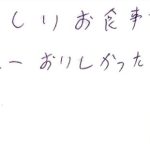 しりお食事
ーおいしかった